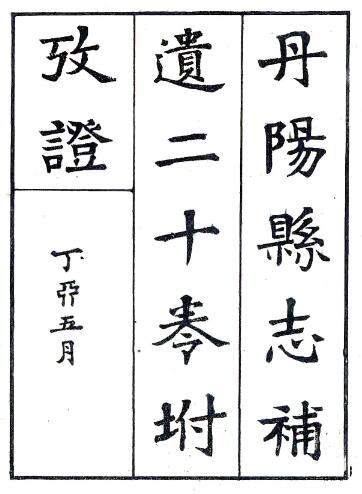 丹陽縣志補
遺二十卷坿
攷證
丁亥五月